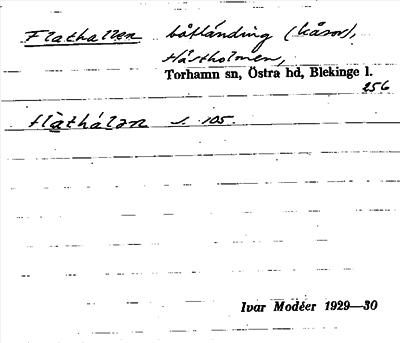 Flathallen båtländing (kåsor),
Hästholmen,
Torhamn sn, Östra hd, Blekinge l.
256
flàthálan s. 105.
Ivar Modéer 1929—30